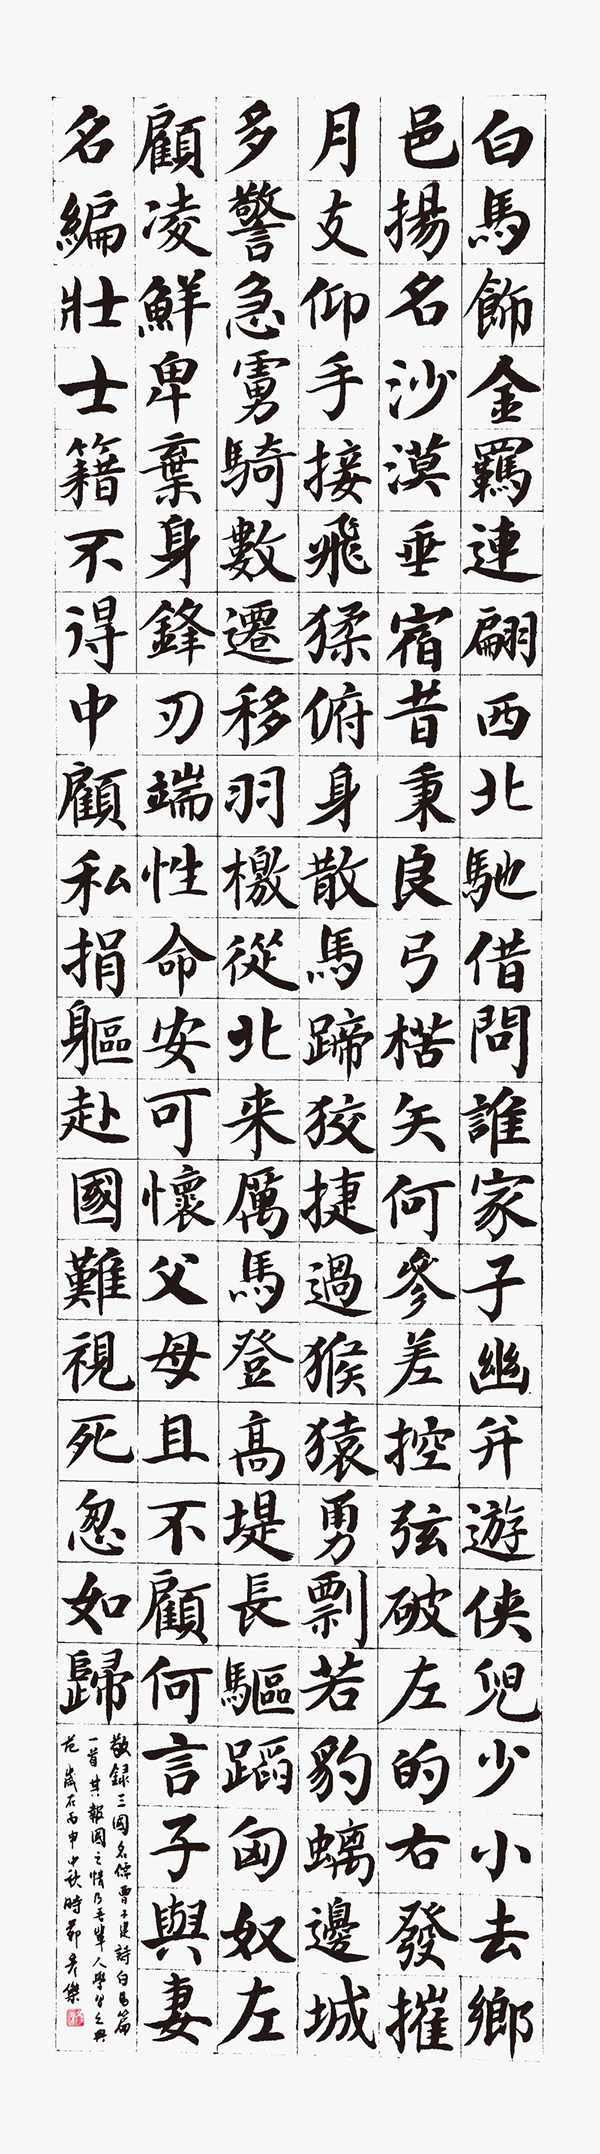 白馬飾金羈連翩西北馳借問誰家子幽并遊侠兒少小去鄉
邑揚名沙漠垂宿昔秉良弓楛矢何參差控弦破左的右發摧
月支仰手接飛猱俯身散馬蹄狡捷過猴猿勇剽若豹螭邊城
多警急虜騎數遷移羽檄從北来厲馬登高堤長驅蹈匈奴左
顧凌鮮卑棄身鋒刃端性命安可懷父母且不顧何言子與妻
名編壯士籍不得中顧私捐軀赴國難視死忽如歸
敬録三國名儒曹子建詩白馬篇
一首其報國之情乃吾輩人學習之典
范歲在丙申中秋時節彦傑